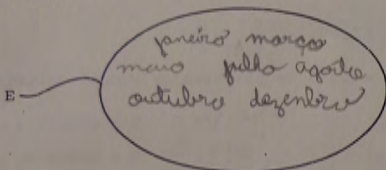 janeiro março
maio julho agosto
E
outubro dezembro